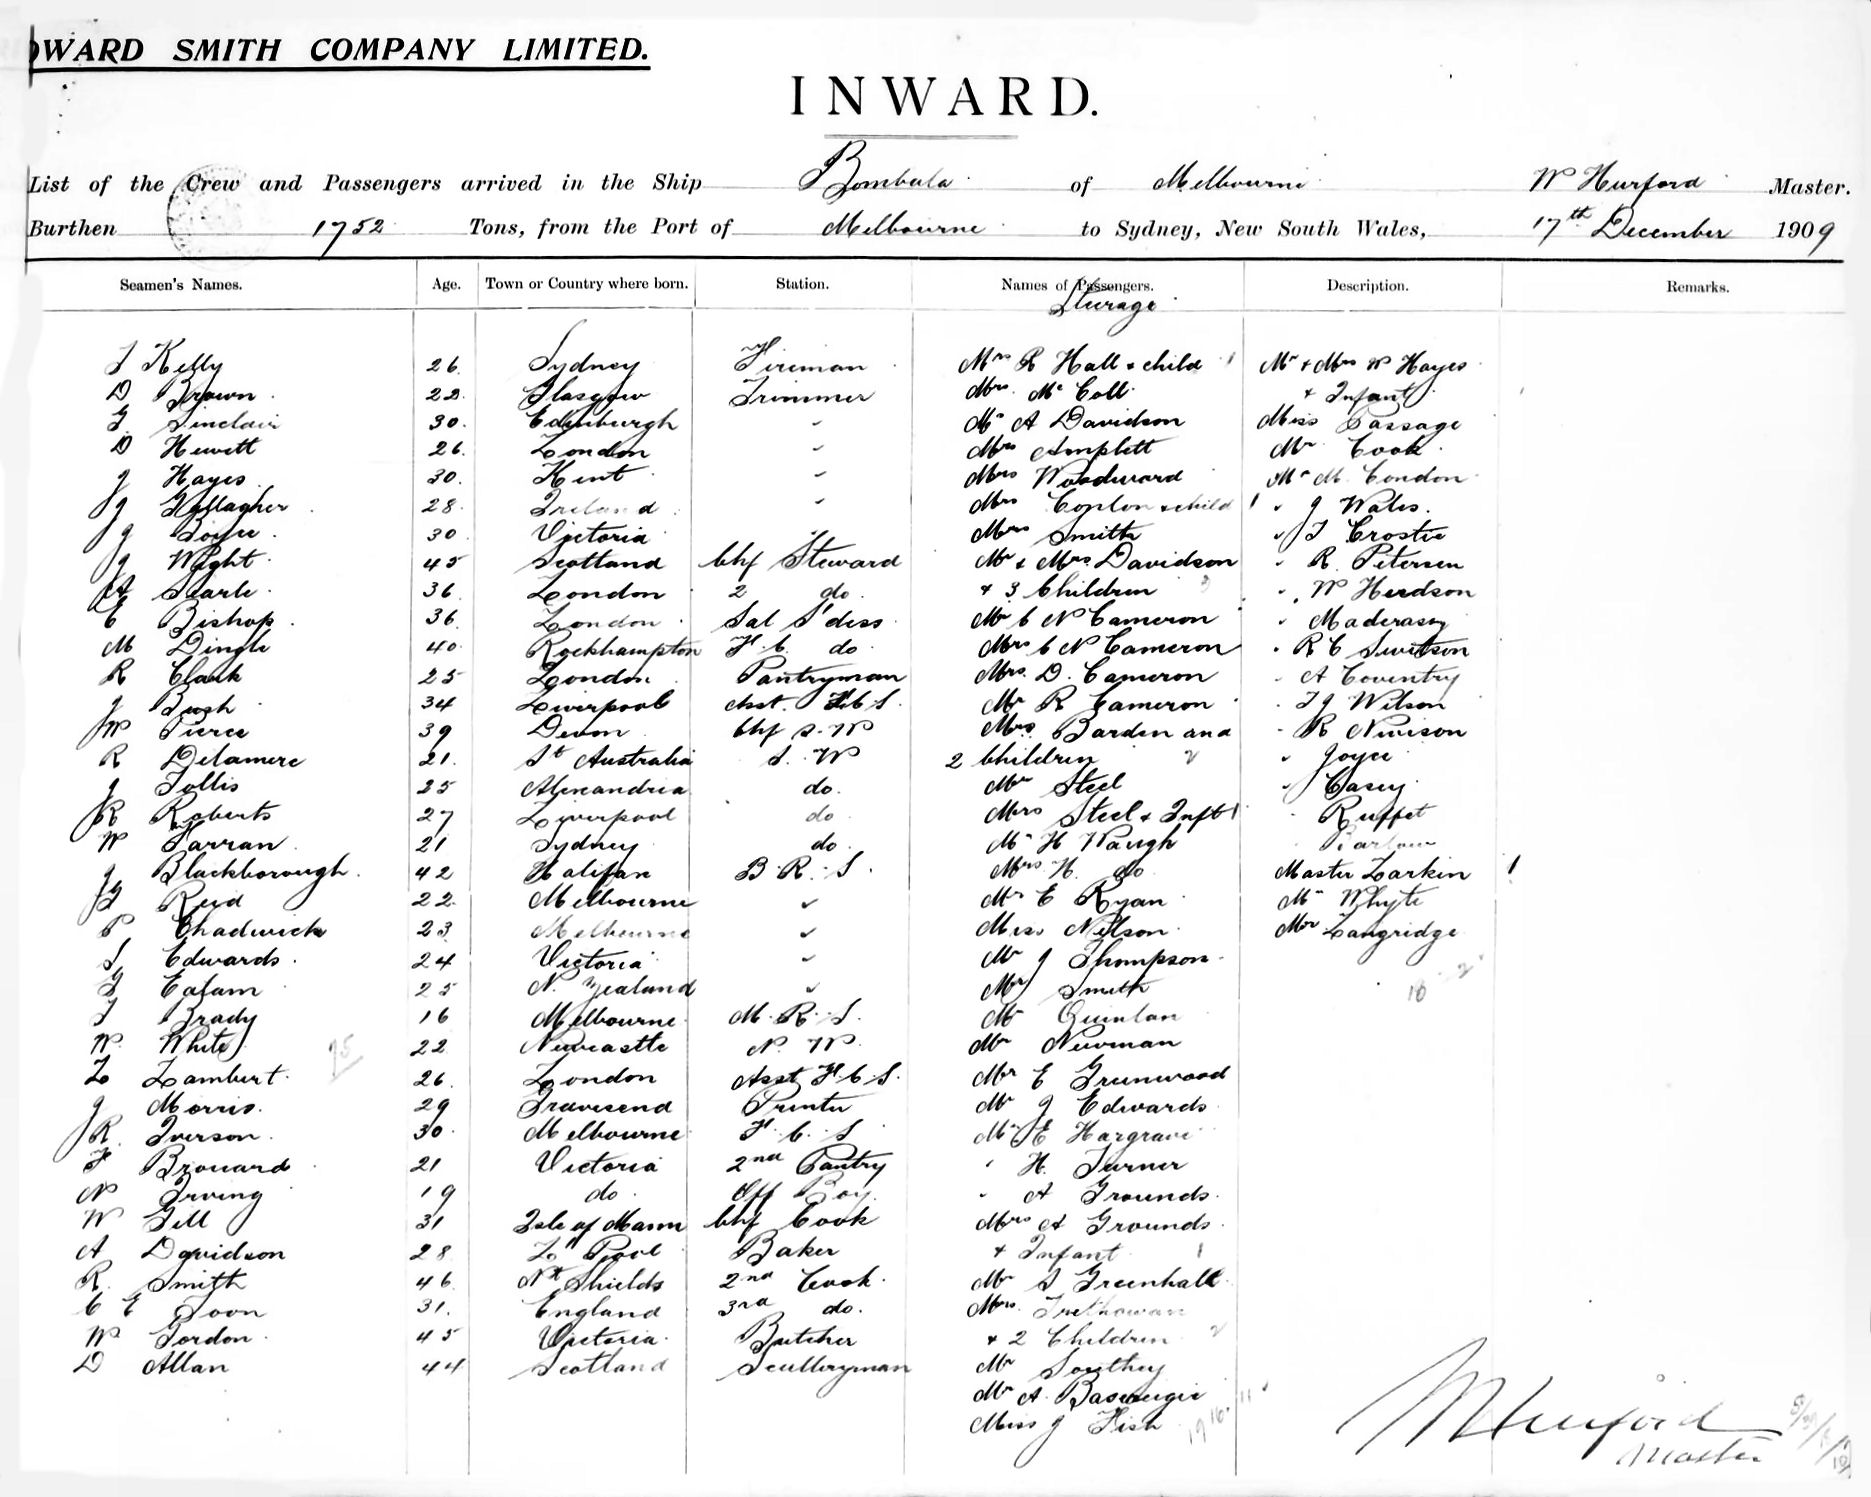 OWARD SMITH COMPANY LIMITED.
INWARD.
List of the Crew and Passengers arrived in the Ship Bombala of Melbourne W Hurford Master.
Burthen 1752 Tons, from the Port of Melbourne to Sydney, New South Wales, 17th December 1909
Seamen's Names. Age. Town or Country where born. Station. Names of Passengers. Description. Remarks.
Steerage
J Kelly 26. Sydney Fireman Mrs R Hall & child 1 Mr & Mrs W Hayes
D Brown 22. Glasgow Trimmer Mrs Mc Coll & Infant
G Sinclair 30. Edinburgh " Mr A Davidson Miss Passage
D Hewitt 26. London " Mrs Amplett Mr Cook
J Hayes 30. Kent " Mrs Woodward Mr M Condon
J Gallagher 28. Ireland " Mrs Coplon & child 1 " J Wales.
J 30 Victoria " Mrs Smith " T Crostie
J Wight 45 Scotland Chf Steward Mr & Mrs Davidson " R. Petersen
A Searle 36. London 2 do & 3 Children 3 " W Herdson
E Bishop 36. London Sal S'dess Mr C N Cameron "
M Dingle 40. Rockhampton F. C. do Mrs C N Cameron " R C Swetson
R Clark 25 London Pantryman Mrs. D. Cameron " A Coventry
J 34 Liverpool Asst. F C S. Mr R Cameron " T J Wilson
W Pierce 39 Devon Chf S. W Mrs Barden and " R Nivison
R Delamere 21. St Australia S. W 2 Children 2 " Joyce
J Tollis 25 Alexandria do. Mr Steel " Casey
R Roberts 27 Liverpool do Mrs Steel & Inft 1 " Ruffet
W Farran 21 Sydney do. Mr H Waugh " Barlow
J Blackborough. 42 Halifax B. R. S. Mrs H. do Master Larkin 1
G Reid 22. Melbourne " Mr E Ryan Mr Whyte
P Chadwick 23 Melbourne " Miss Nilson Mr Langridge
S Edwards. 24 Victoria " Mr J Thompson
G 25 N. Zealand " Mr Smith 18 2
T Brady 16 Melbourne M. R. S. Mr Quinlan
W. White 22 Newcastle N. W. Mr Newman
L Lambert. 26. London Asst F. C. S. Mr E Greenwood
J Morris. 29 Gravesend Printer Mr J Edwards
R. Iverson. 30. Melbourne F. C. S Mr E Hargrave
F Brouard 21 Victoria 2nd Pantry " H. Turner
N Irving 19 do Off Boy. " A Grounds.
W Gill 31 Isle of Mann Chf Cook Mrs A Grounds.
A Davidson 28 L'Pool Baker & Infant 1
R. Smith 46. Nt Shields 2nd Cook. Mr S Greenhall
C E Soon 31. England 3rd do. Mrs. Trethowan
W Gordon 45 Victoria Butcher & 2 Children 2
D Allan 44 Scotland Sculleryman Mr Southey
Mr A.
Miss J Fish
W Hurford
Master